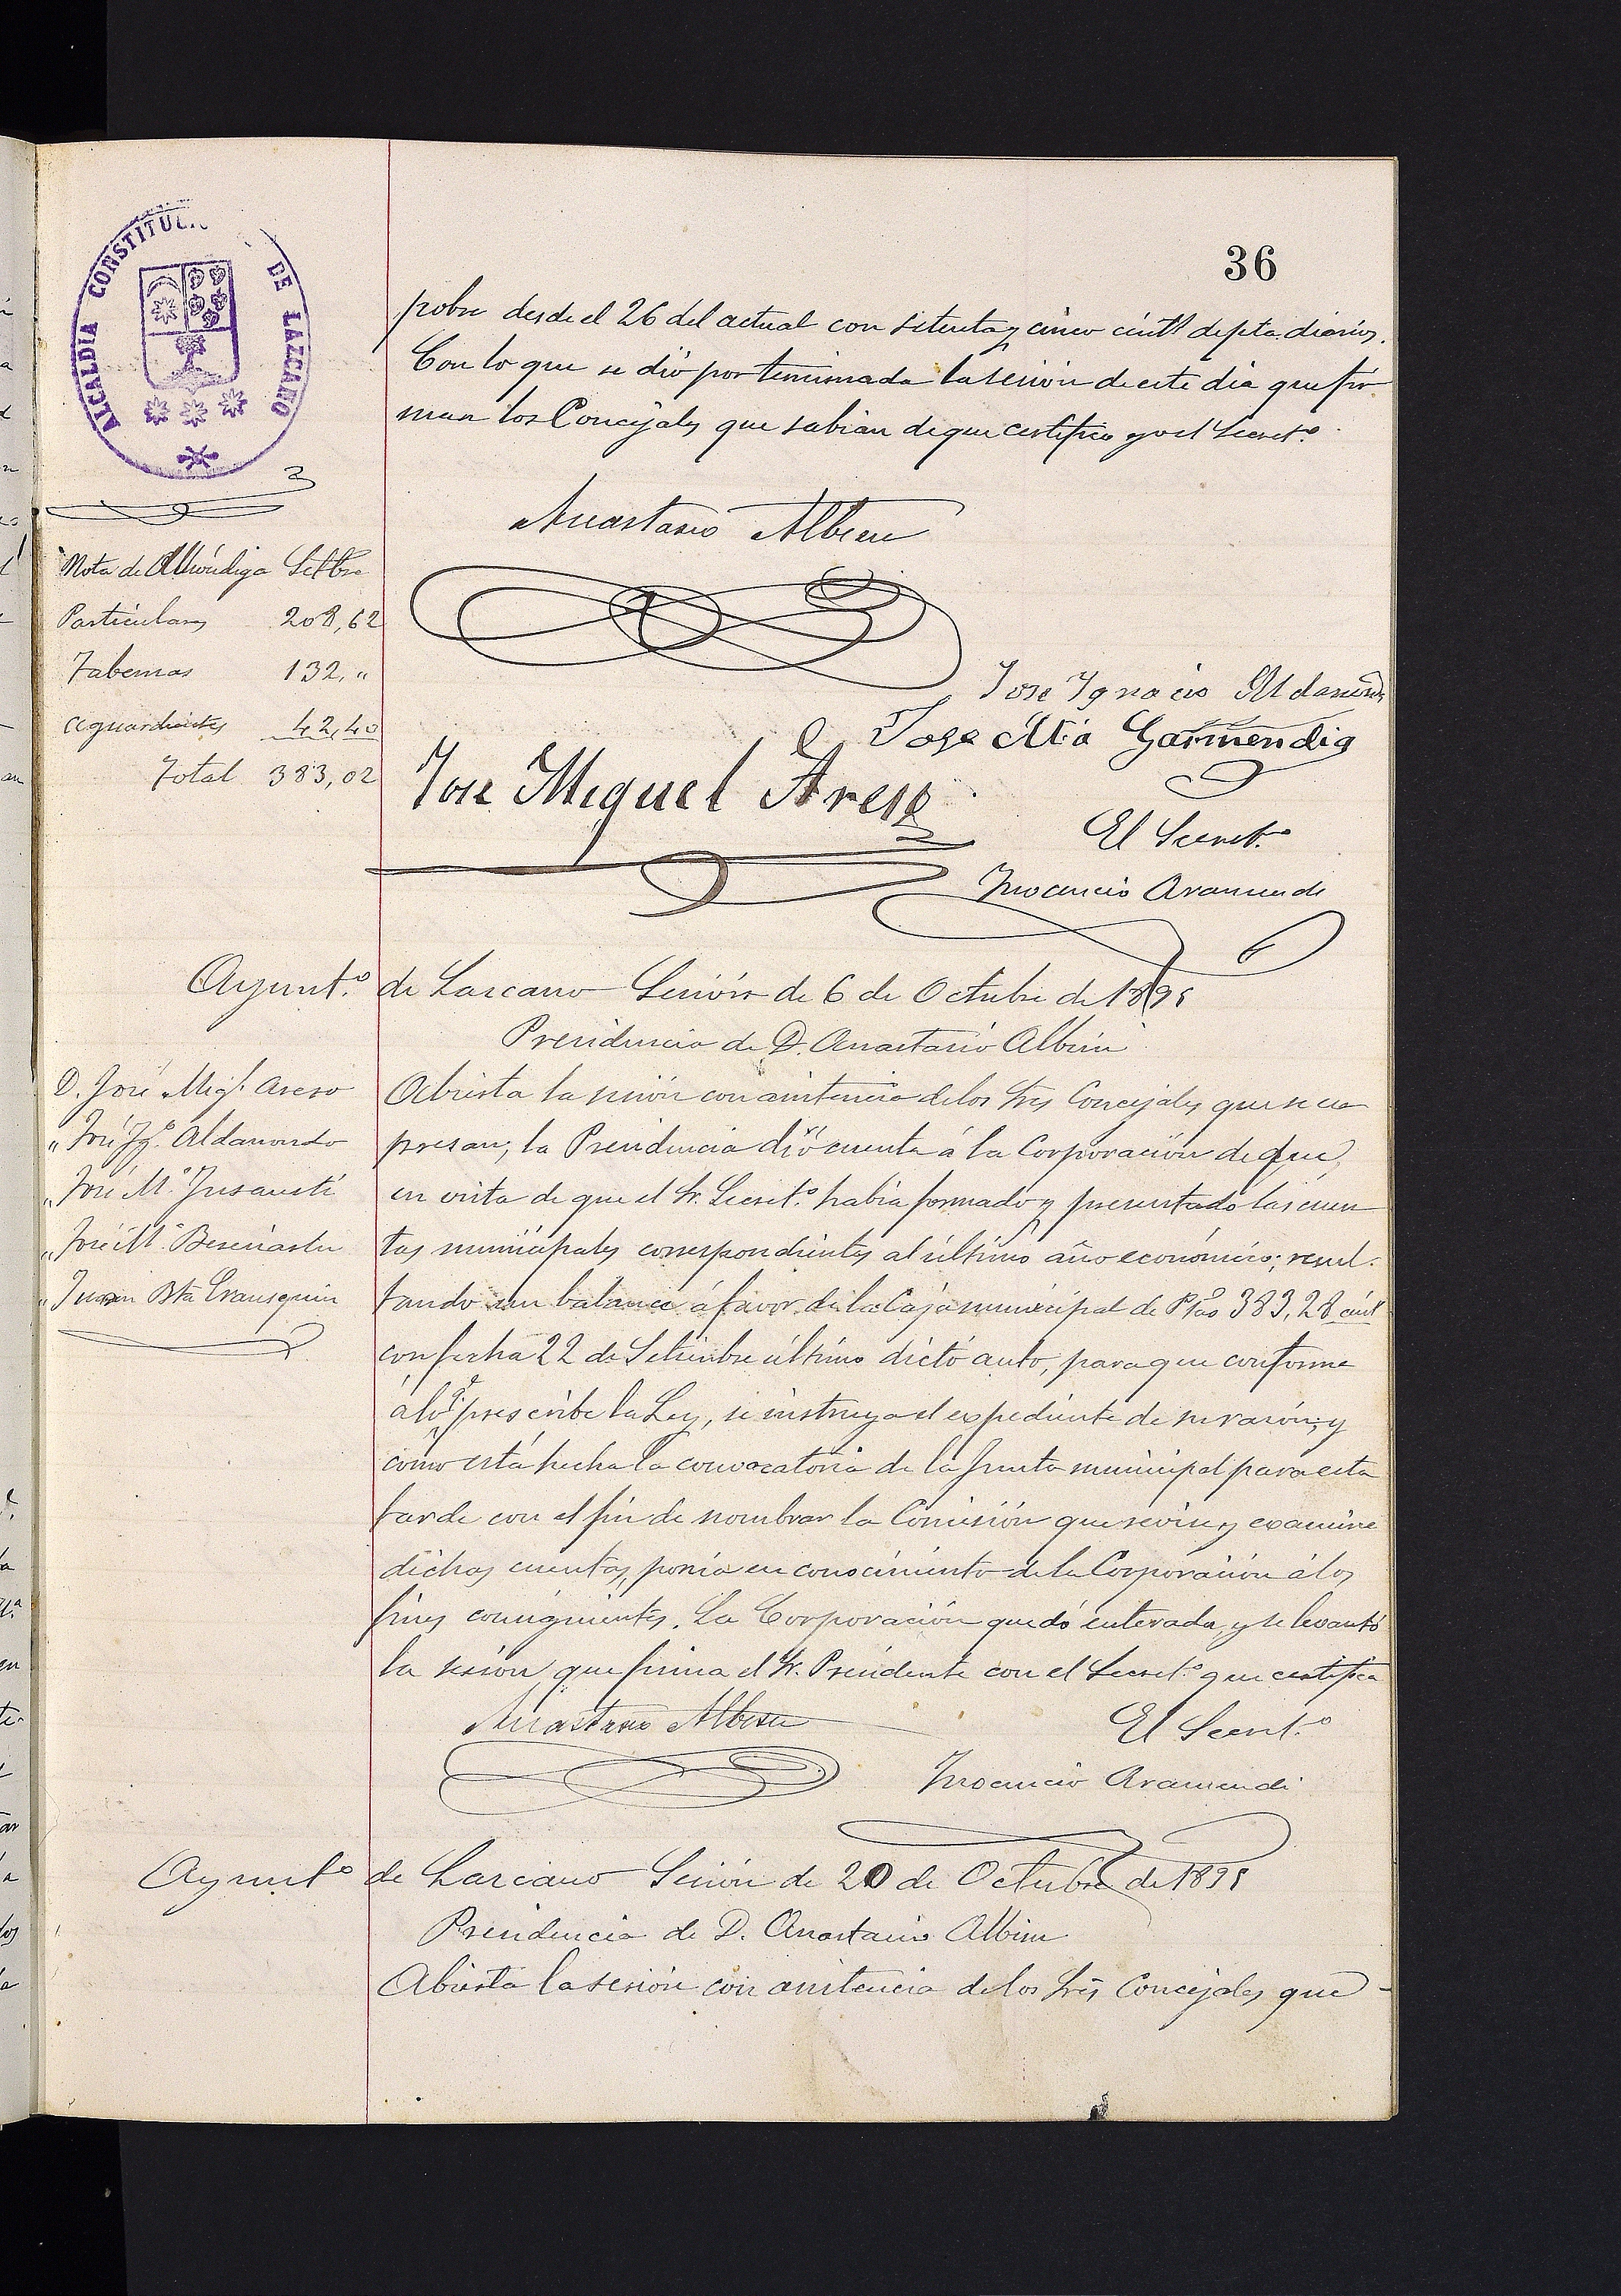 36
ALCALDIA CONSTITUCI DE LAZCANO
pobre desde el 26 del actual con setenta y cinco cént.s de pta. diarios.
Con lo que se dió por terminada la sesión de este dia que fir
man los Concejales que sabian de que certifico yo el Secret.o
Anastasio Albisu
Nota de Alhóndiga Setbre
Particulares 208,62
Tabernas 132,"
Aguardientes 42,40
Total 383,02
José Ignacio Aldanondo
Jose Ma Garmendia
Jose Miguel Areso
El Secret.o
Inocencio Aramendi
Ayunt.o de Lazcano Sesión de 6 de Octubre de 1895
Presidencia de D. Anastasio Albisu
D. José Migl. Areso
" José Ig.o Aldanondo
" José M.a Insausti
" José M.a
" Juan Bta Erausquin
Abierta la sesión con asistencia de los Sres Concejales que se ex
presan; la Presidencia dió cuenta á la Corporación de que,
en vista de que el Sr. Secret.o habia formado y presentado las cuen
tas municipales correspondientes al último año económico; resul-
tando un balance á favor de la Caja municipal de Ptas 383,28 cént
con fecha 22 de Setiembre último dictó auto, para que conforme
á lo q.e prescribe la Ley, se instruya el expediente de su razón; y
como está hecha la convocatoria de la Junta municipal para esta
tarde con el fin de nombrar la Comisión que revise y examine
dichas cuentas, ponia en conocimiento de la Corporación á los
fines consiguientes. La Corporación quedó enterada, y se levantó
la sesion, que firma el Sr. Presidente con el Secret.o que certifica
Anastasio Albisu
El Secret.o
Inocencio Aramendi
Ayunt.o de Lazcano Sesión de 20 de Octubre de 1895
Presidencia de D. Anastasio Albisu
Abierta la sesión con asistencia de los Sres Concejales que